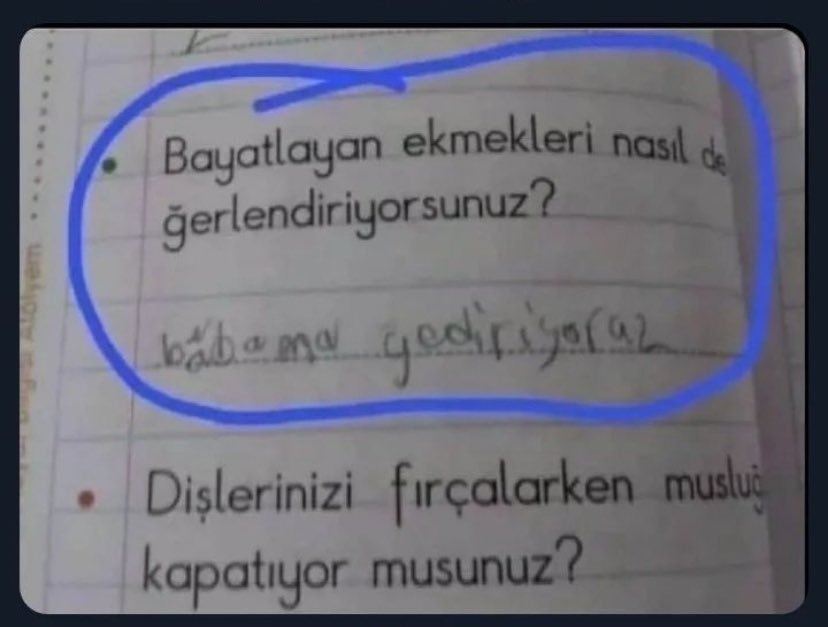 Bayatlayan ekmekleri nasıl de
ğerlendiriyorsunuz?
babama yediriyoruz
Dişlerinizi fırçalarken musluğ
kapatıyor musunuz?